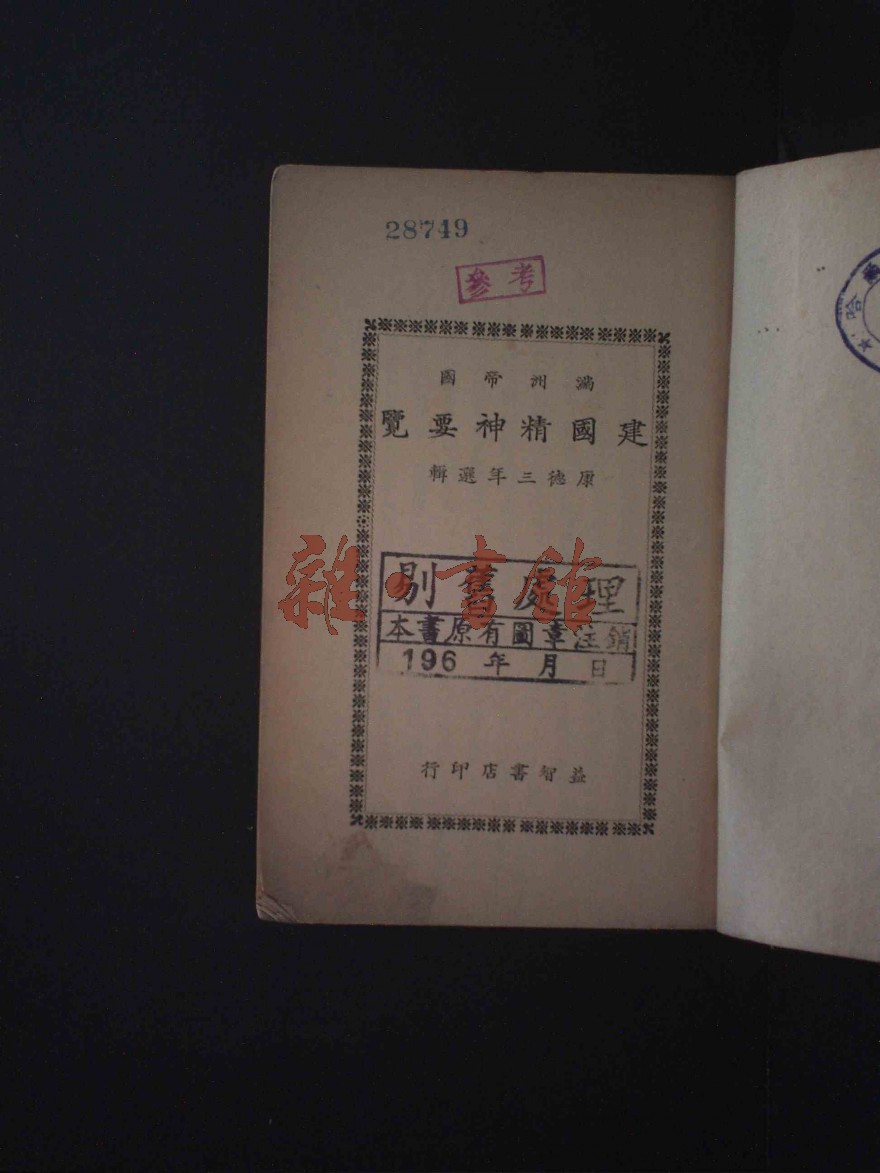 28749
參考
滿洲帝國
建國精神要覽
康德三年選輯
雜·書館
剔舊處理
本書原有圖章注銷
196 年 月 日
益智書店印行
哈